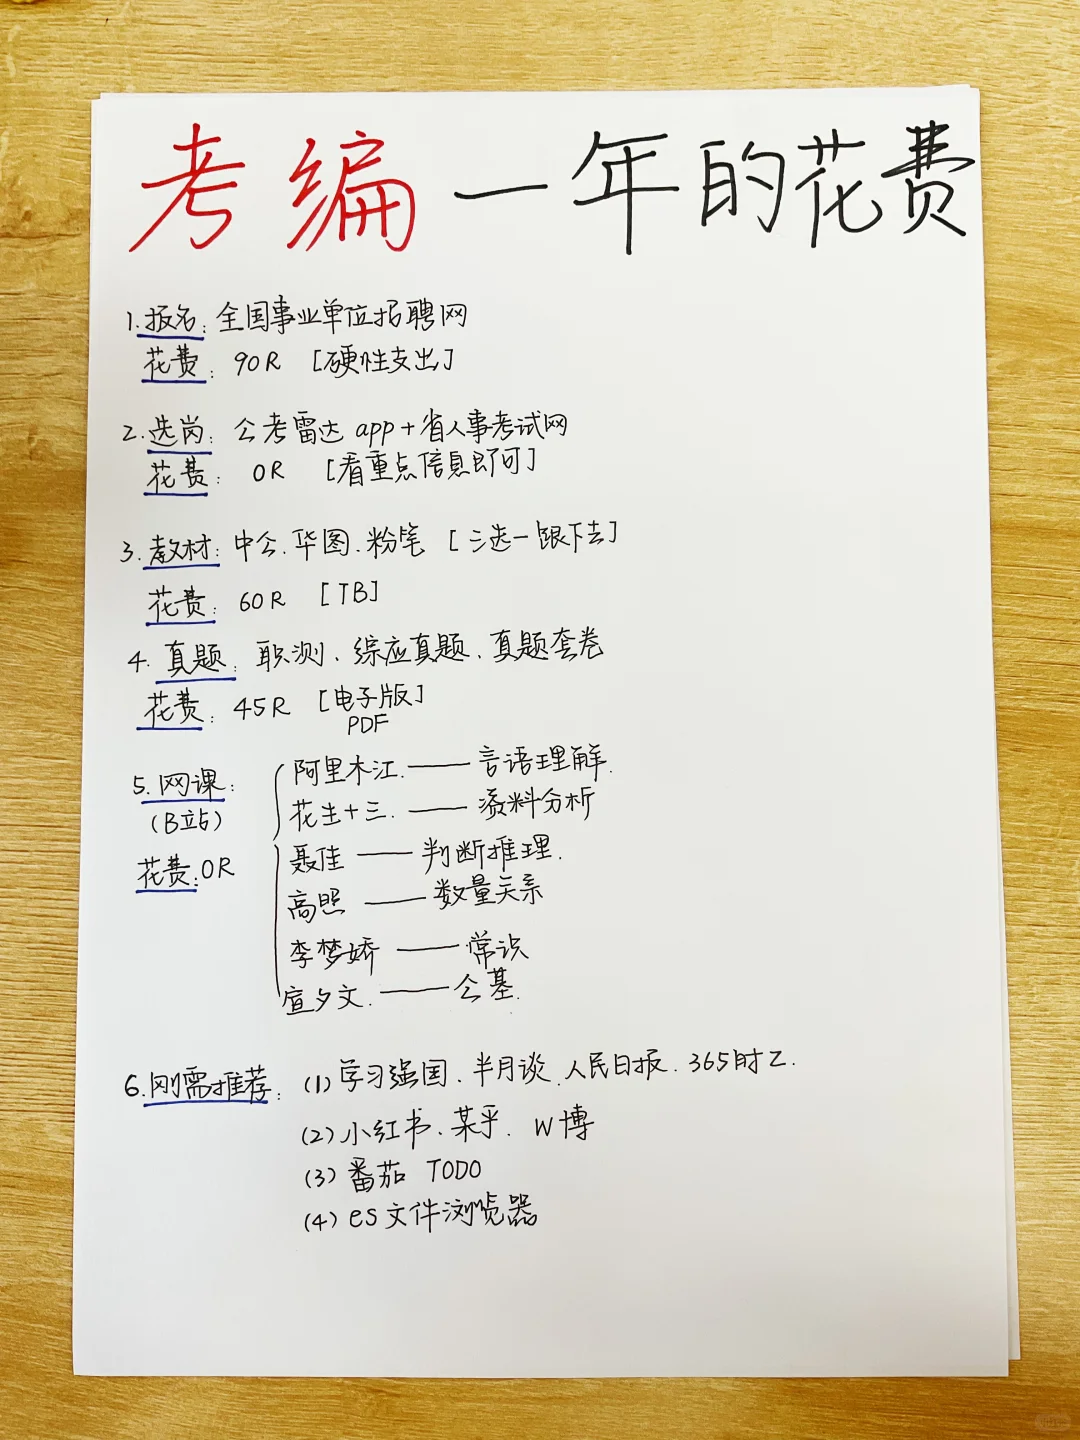 考编一年的花费
1.报名：全国事业单位招聘网
花费：90R [硬性支出]
2.选岗：公考雷达 app+省人事考试网
花费：0R [看重点信息即可]
3.教材：中公.华图.粉笔 [三选一跟下去]
花费：60R [TB]
4.真题：职测、综应真题、真题套卷
花费：45R [电子版]
PDF
5.网课：
（B站）
花费：0R
阿里木江.——言语理解.
花生十三.——资料分析
聂佳——判断推理.
高照——数量关系
李梦娇——常识
宣夕文.——公基.
6.刚需推荐：(1)学习强国.半月谈.人民日报.365时乙.
(2)小红书、某乎.W博
(3)番茄 TODO
(4)es文件浏览器